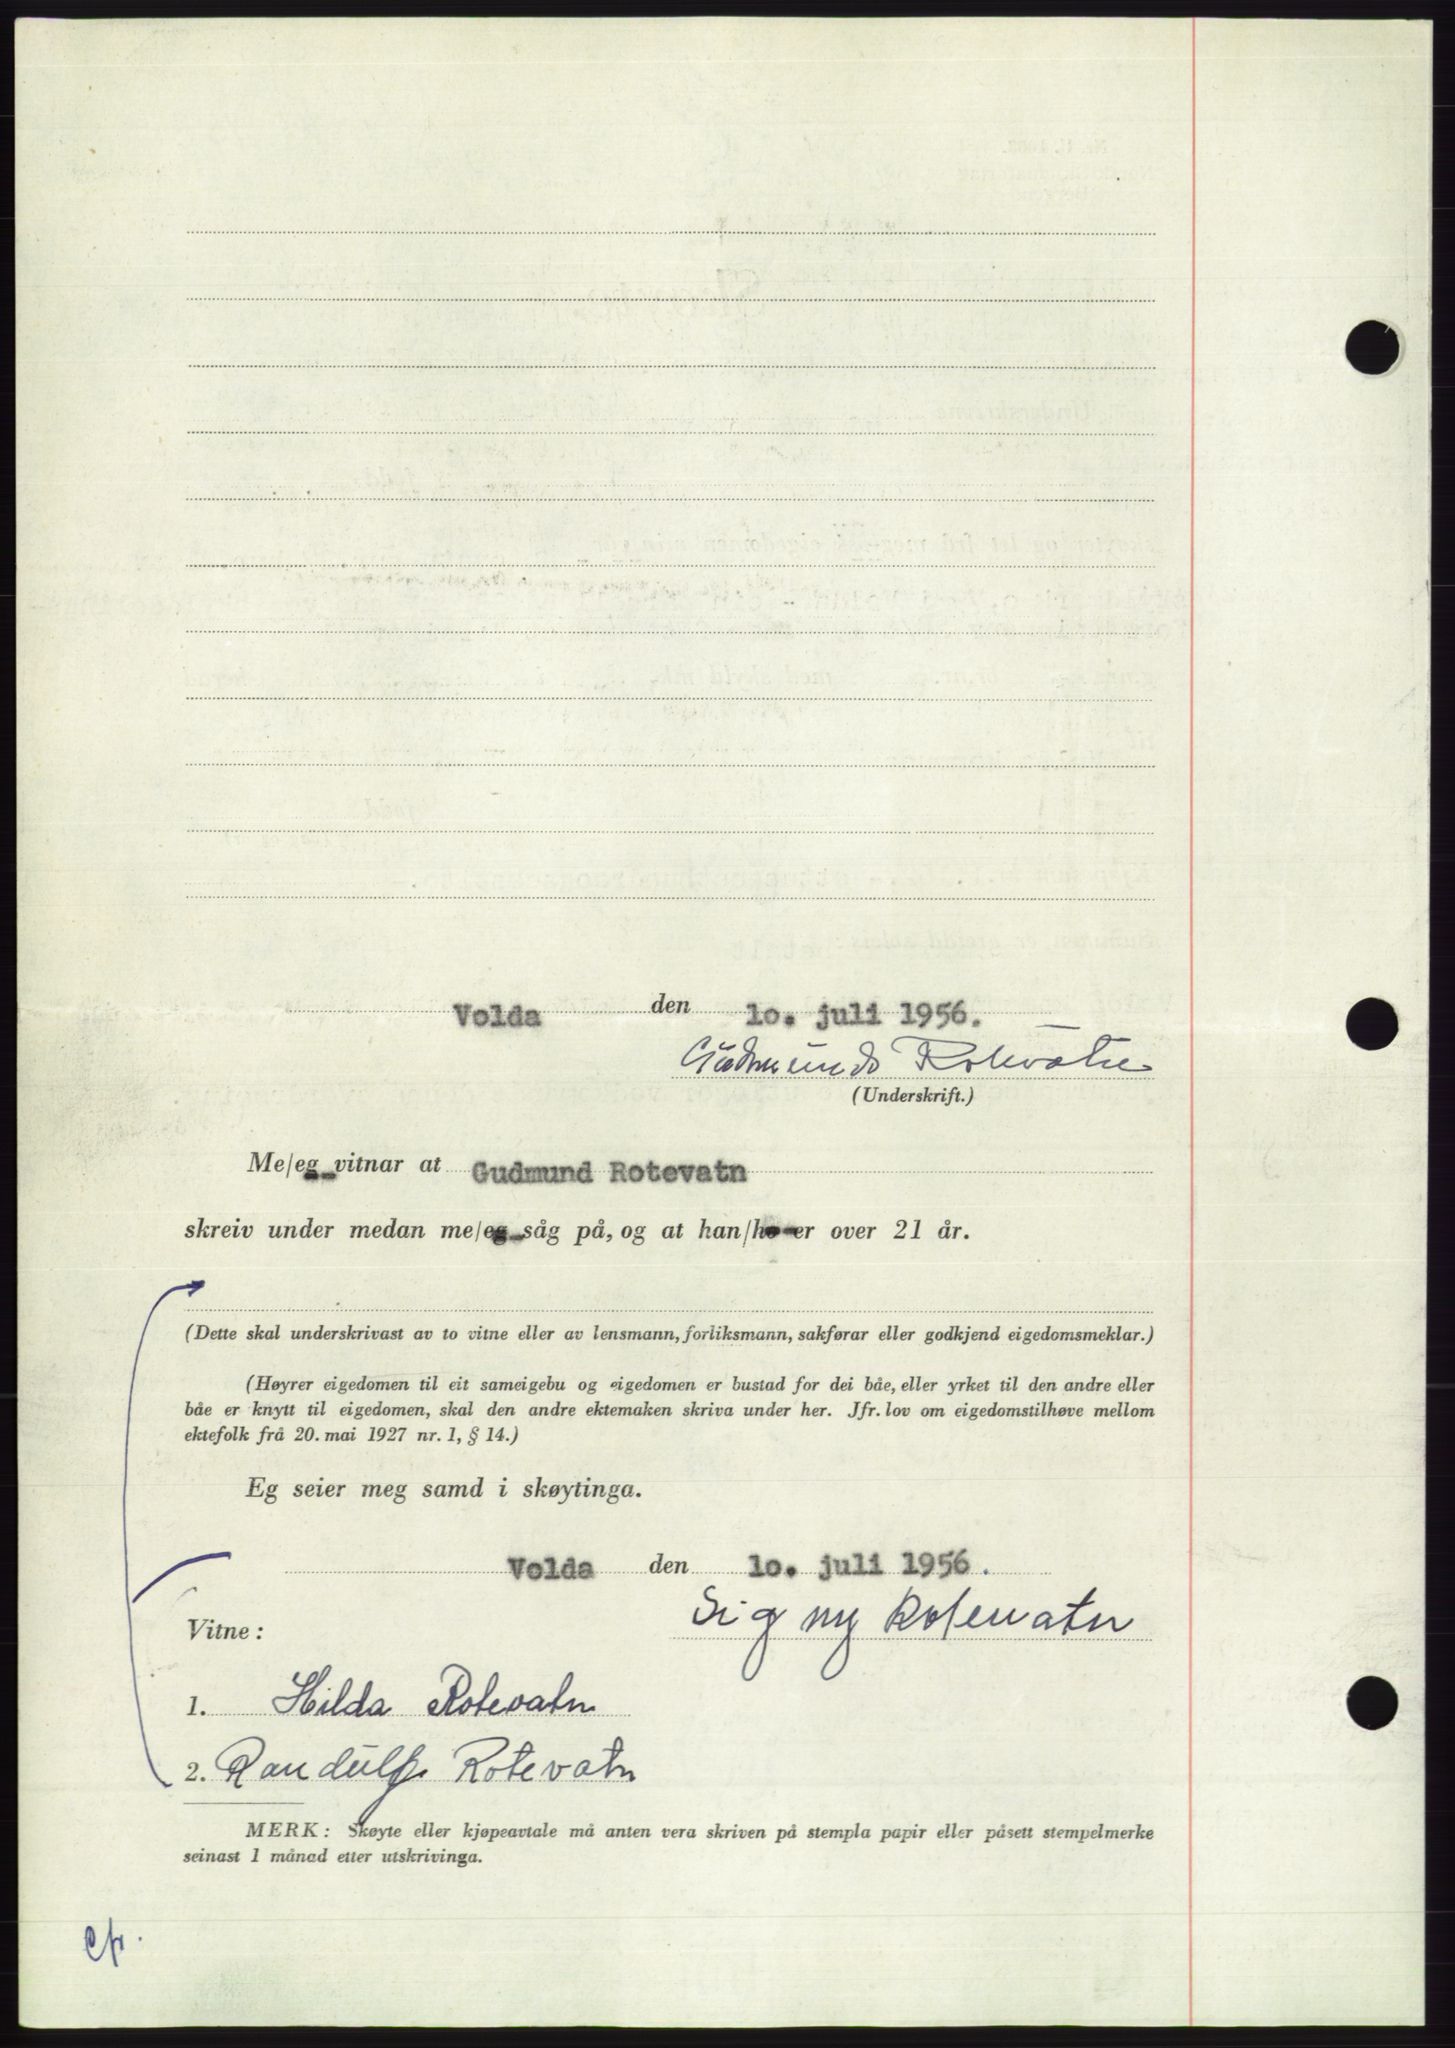 Volda den 10. juli 1956.
Gudmund Rotevatn
(Underskrift.)
Me/eg vitnar at Gudmund Rotevatn
skreiv under medan me/eg såg på, og at han/ho er over 21 år.
(Dette skal underskrivast av to vitne eller av lensmann, forliksmann, sakførar eller godkjend eigedomsmeklar.)
(Høyrer eigedomen til eit sameigebu og eigedomen er bustad for dei båe, eller yrket til den andre eller
båe er knytt til eigedomen, skal den andre ektemaken skriva under her. Jfr. lov om eigedomstilhøve mellom
ektefolk frå 20. mai 1927 nr. 1, § 14.)
Eg seier meg samd i skøytinga.
Volda den 10. juli 1956.
Signy Rotevatn
Vitne:
1. Hilda Rotevatn
2. Randulf Rotevatn
MERK: Skøyte eller kjøpeavtale må anten vera skriven på stempla papir eller påsett stempelmerke
seinast 1 månad etter utskrivinga.